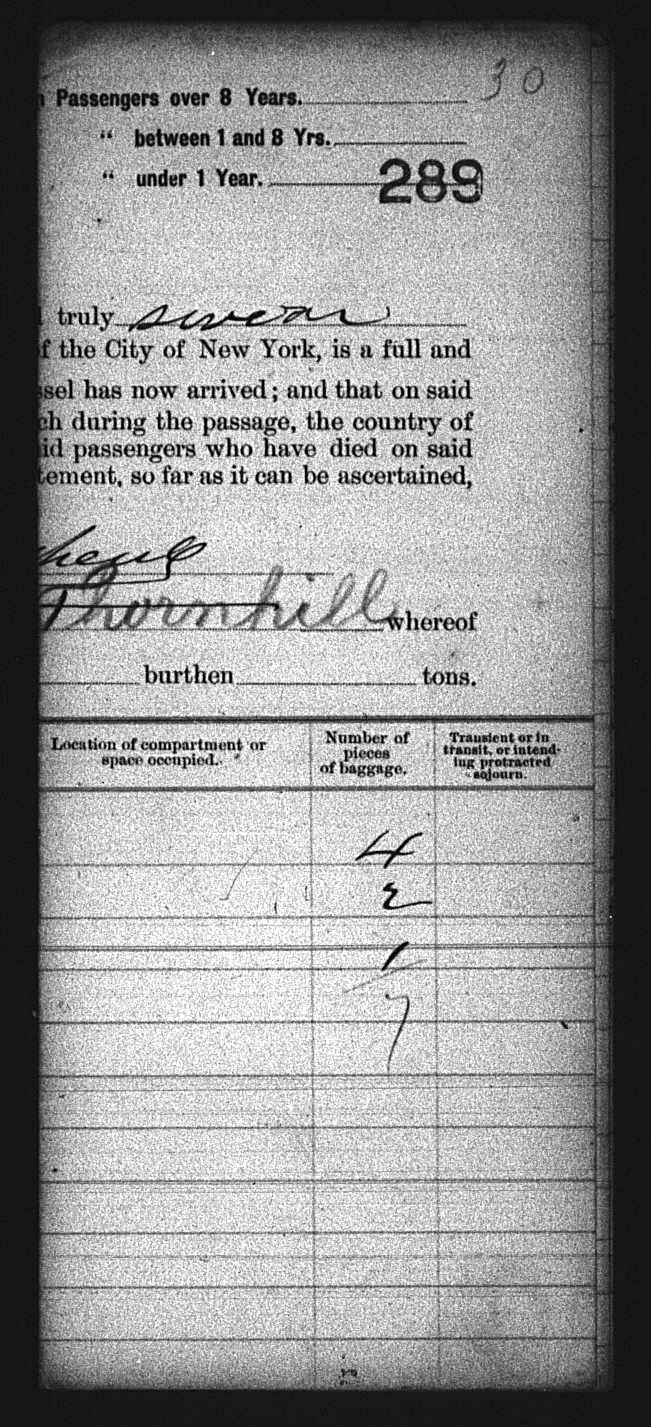 30
Passengers over 8 Years.
“ between 1 and 8 Yrs.
“ under 1 Year.
289
truly swear
f the City of New York, is a full and
sel has now arrived; and that on said
ch during the passage, the country of
id passengers who have died on said
tement, so far as it can be ascertained,
Thornhill whereof
burthen tons.
Location of compartment or
space occupied.
Number of
pieces
of baggage.
Transient or in
transit, or intend-
ing protracted
sojourn.
4
2
1
7